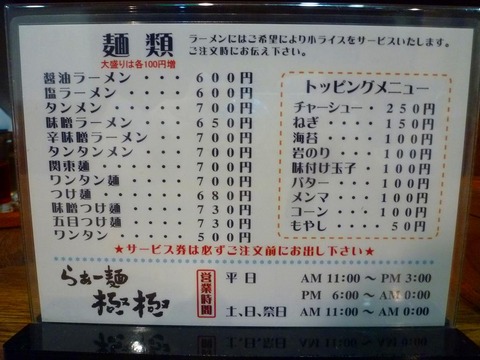 麺類
大盛りは各100円増
ラーメンにはご希望により小ライスをサービスいたします。
ご注文時にお伝え下さい。
醤油ラーメン・・・・600円
塩ラーメン・・・・・600円
タンメン・・・・・・700円
味噌ラーメン・・・・650円
辛味噌ラーメン・・・700円
タンタンメン・・・・700円
関東麺・・・・・・・700円
ワンタン麺・・・・・700円
つけ麺・・・・・・・680円
味噌つけ麺・・・・・730円
五目つけ麺・・・・・730円
ワンタン・・・・・・500円
トッピングメニュー
チャーシュー・・250円
ねぎ・・・・・150円
海苔・・・・・100円
岩のり・・・・100円
味付け玉子・・100円
バター・・・・100円
メンマ・・・・100円
コーン・・・・100円
もやし・・・・50円
★サービス券は必ずご注文前にお出し下さい★
らぁー麺
極極
営業時間
平日 AM 11:00～PM 3:00
PM 6:00～AM 0:00
土、日、祭日 AM 11:00～AM 0:00